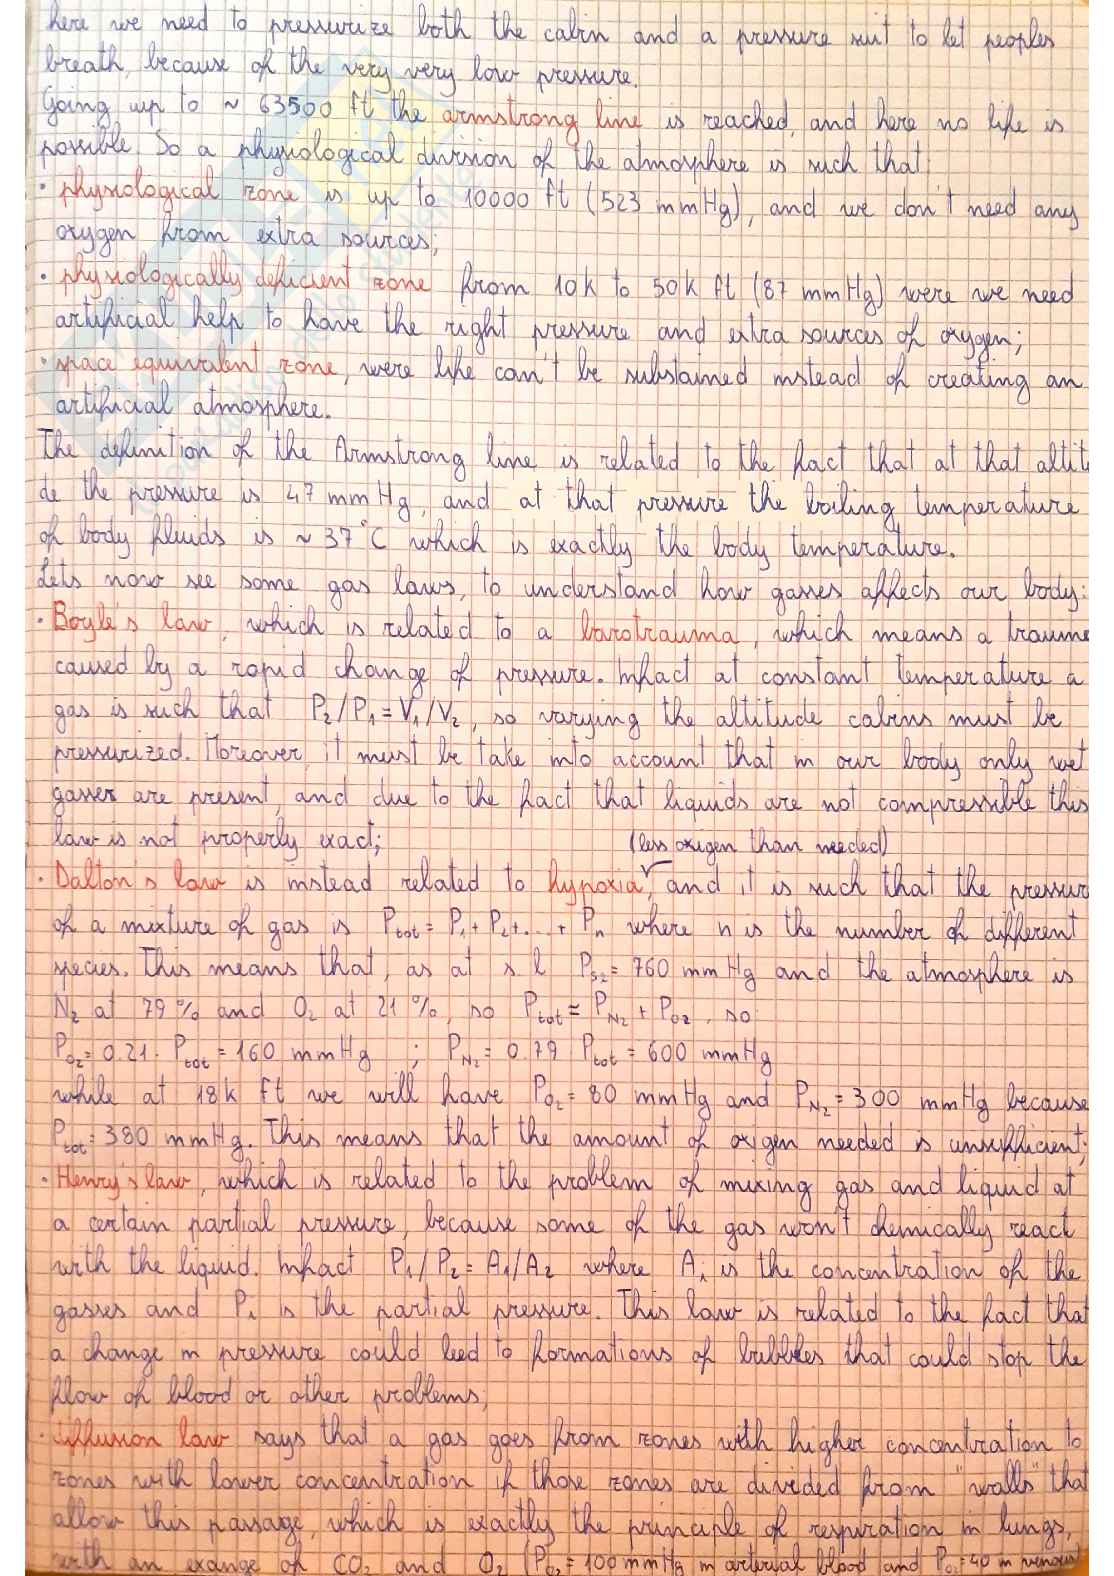 here we need to pressurize both the cabin and a pressure suit to let peoples
breath, because of the very very low pressure.
Going up to ~ 63500 ft the armstrong line is reached, and here no life is
possible. So a physiological division of the atmosphere is such that:
• physiological zone is up to 10000 ft (523 mmHg), and we don't need any
oxygen from extra sources;
• physiologically deficient zone from 10k to 50k ft (87 mmHg) were we need
artificial help to have the right pressure and extra sources of oxygen;
• space equivalent zone, were life can't be substained instead of creating an
artificial atmosphere.
The definition of the Armstrong line is related to the fact that at that altit
de the pressure is 47 mmHg, and at that pressure the boiling temperature
of body fluids is ~ 37°C which is exactly the body temperature.
Lets now see some gas laws, to understand how gasses affects our body:
• Boyle's law, which is related to a barotrauma, which means a traume
caused by a rapid change of pressure. Infact at constant temperature a
gas is such that P₂/P₁ = V₁/V₂, so varying the altitude cabins must be
pressurized. Moreover, it must be take into account that in our body only wet
gasses are present, and due to the fact that liquids are not compressible this
law is not properly exact;
(less oxigen than needed)
• Dalton's law is instead related to hypoxia, and it is such that the pressur
of a mixture of gas is Ptot = P₁ + P₂ + ... + Pn where n is the number of different
species. This means that, as at s l Psl = 760 mmHg and the atmosphere is
N₂ at 79 % and O₂ at 21 %, so Ptot = PN₂ + PO₂, so:
PO₂ = 0.21 · Ptot = 160 mmHg ; PN₂ = 0.79 Ptot = 600 mmHg
while at 18k ft we will have PO₂ = 80 mmHg and PN₂ = 300 mmHg because
Ptot = 380 mmHg. This means that the amount of oxigen needed is unsufficient;
• Henry's law, which is related to the problem of mixing gas and liquid at
a certain partial pressure, because some of the gas won't chemically react
with the liquid. Infact P₁/P₂ = A₁/A₂ where Ai is the concentration of the
gasses and Pi is the partial pressure. This law is related to the fact that
a change in pressure could leed to formations of bubbles that could stop the
flow of blood or other problems;
• Diffusion law says that a gas goes from zones with higher concentration to
zones with lower concentration if those zones are divided from "walls" that
allow this passage, which is exactly the principle of respiration in lungs,
with an exange of CO₂ and O₂ (PO₂ = 100 mmHg in arterial blood and PO₂ = 40 in venous